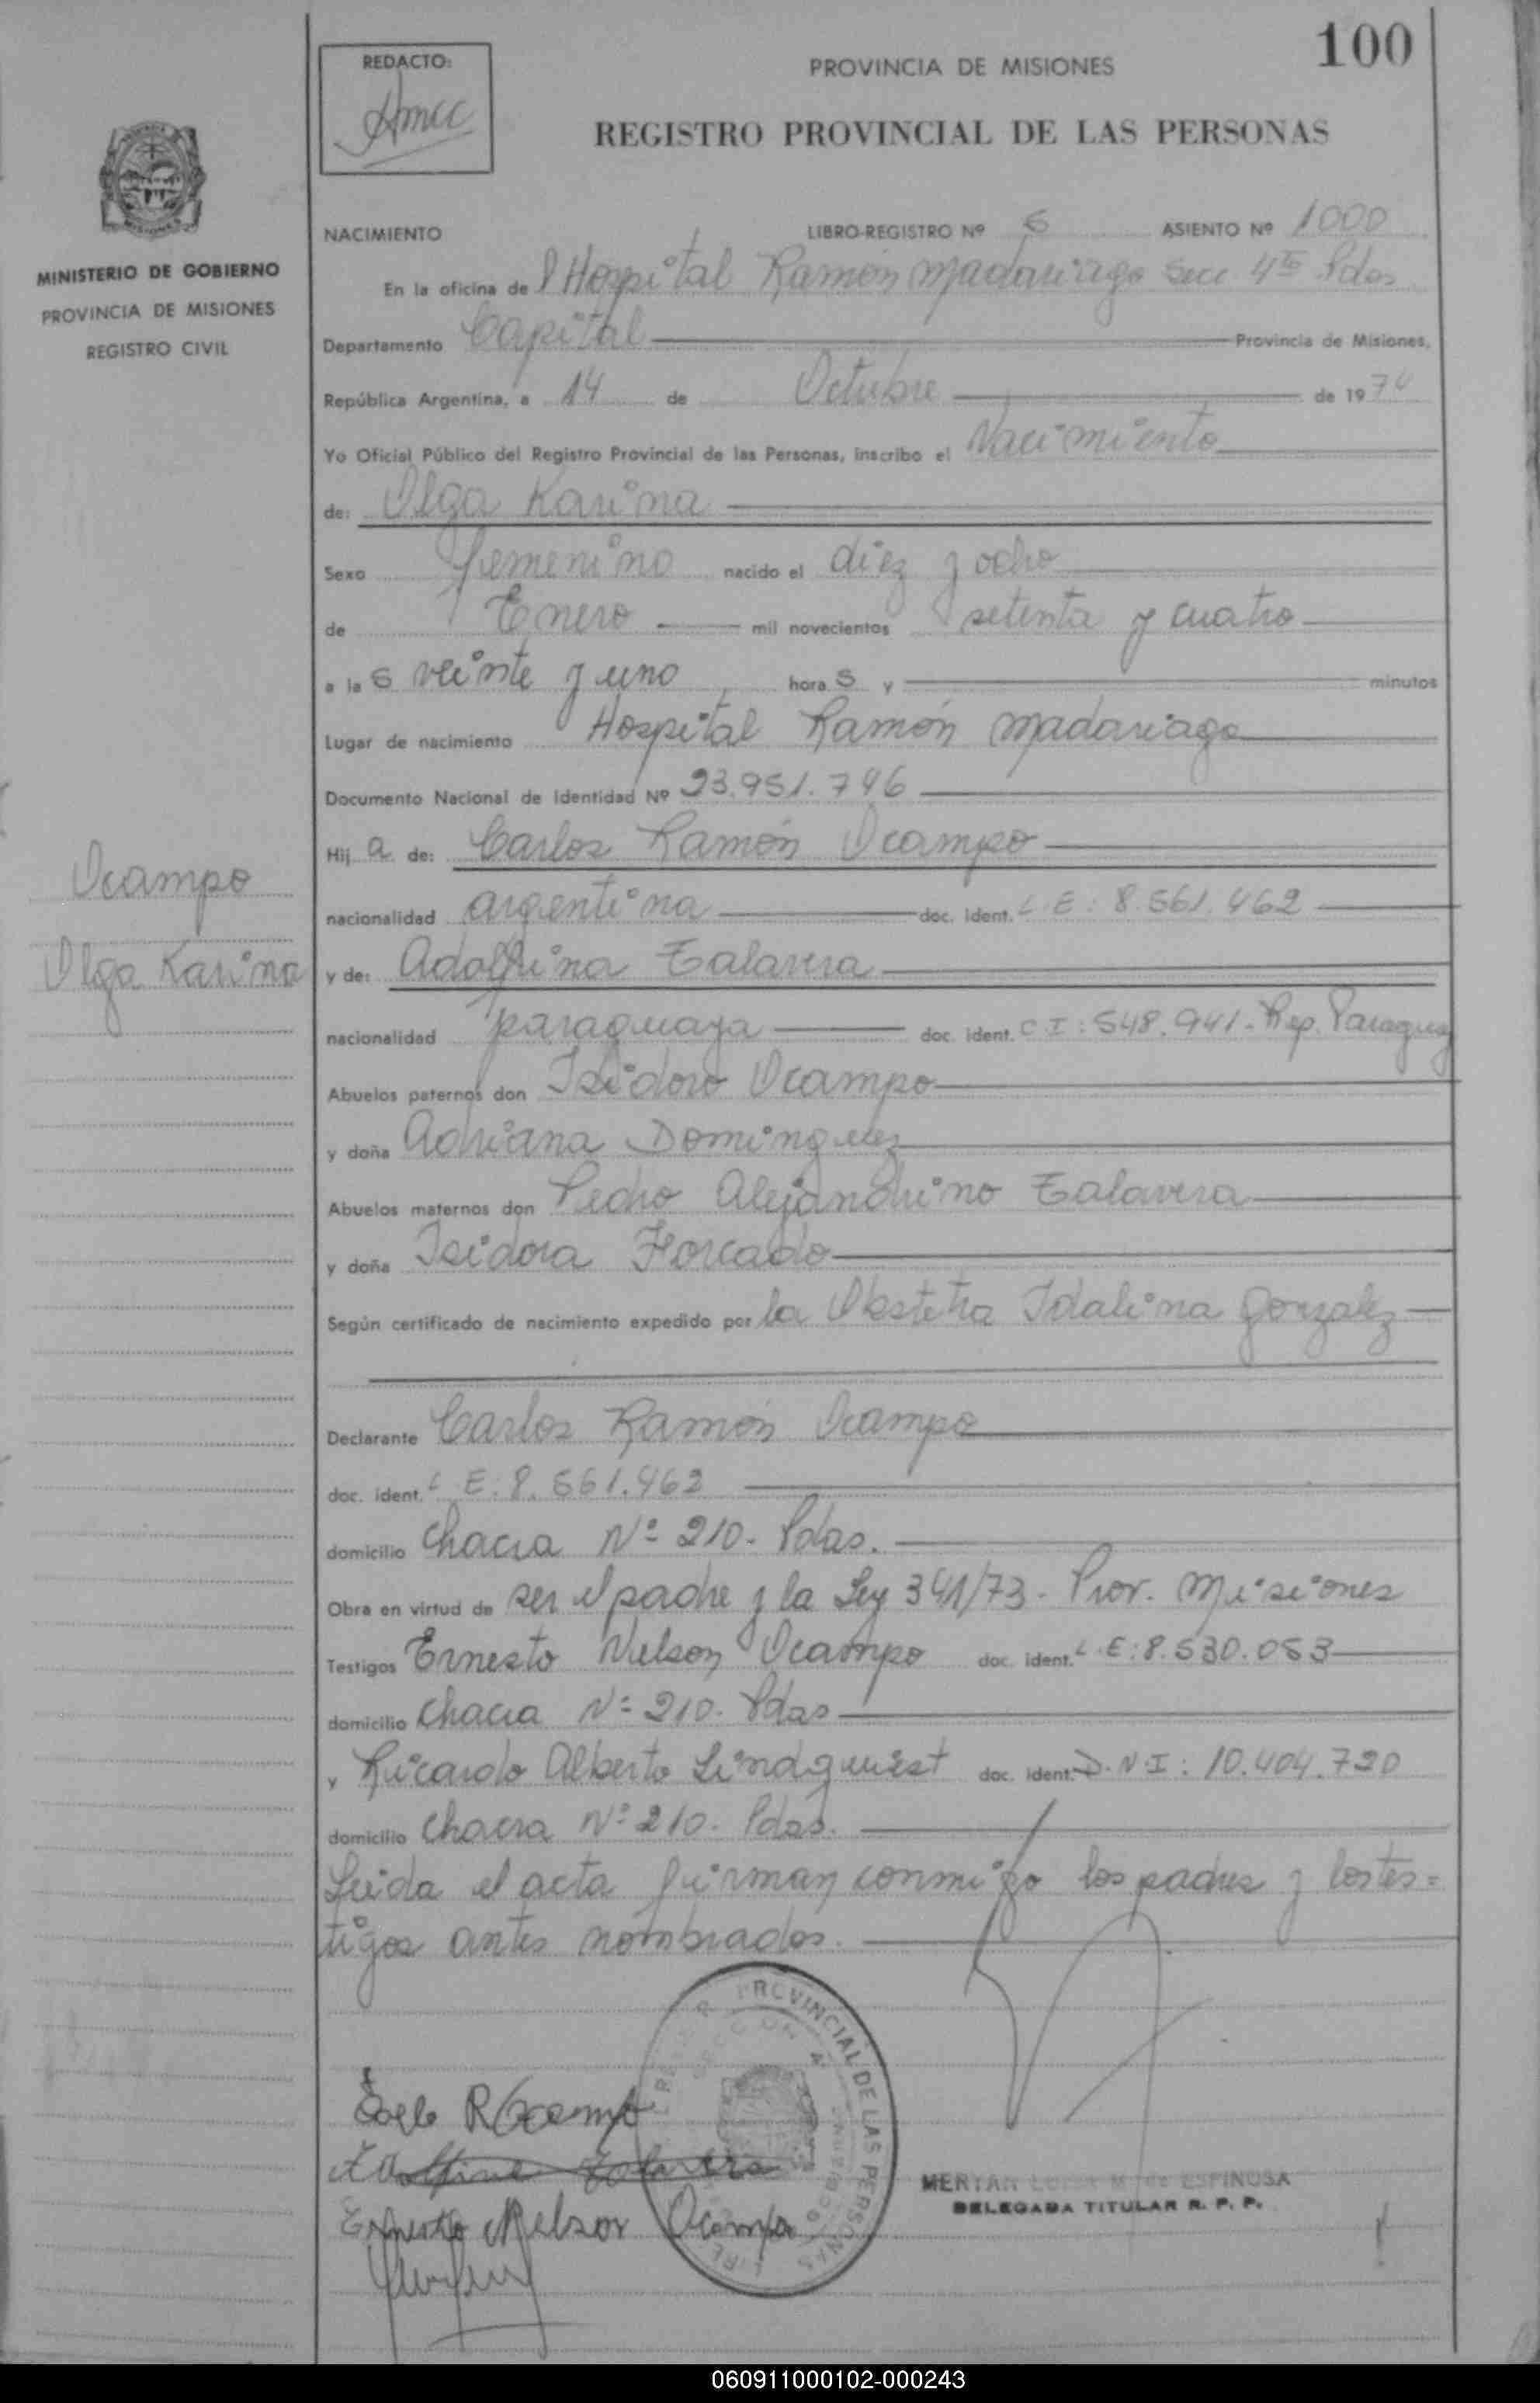 100
REDACTO:
PROVINCIA DE MISIONES
REGISTRO PROVINCIAL DE LAS PERSONAS
MINISTERIO DE GOBIERNO
PROVINCIA DE MISIONES
REGISTRO CIVIL
NACIMIENTO LIBRO-REGISTRO Nº 6 ASIENTO Nº 1000
En la oficina de l Hospital Ramón Madariaga Secc 4ta Pdas
Departamento Capital Provincia de Misiones,
República Argentina, a 14 de Octubre de 1974
Yo Oficial Público del Registro Provincial de las Personas, inscribo el Nacimiento
de: Olga Karina
Sexo femenino nacido el diez y ocho
de Enero mil novecientos setenta y cuatro
a las veinte y uno horas y minutos
Lugar de nacimiento Hospital Ramón Madariaga
Documento Nacional de Identidad Nº 23.951.746
Hija de: Carlos Ramón Ocampo
Ocampo
Olga Karina
nacionalidad argentina doc. Ident. L.E: 8.561.462
y de: Adolfina Talavera
nacionalidad paraguaya doc. ident. C I: 548.941- Rep. Paraguay
Abuelos paternos don Isidoro Ocampo
y doña Adriana Dominguez
Abuelos maternos don Pedro Alejandrino Talavera
y doña Isidora Forcado
Según certificado de nacimiento expedido por la Obstetra Idalina Gonzalez
Declarante Carlos Ramón Ocampo
doc. ident. L E: 8.561.462
domicilio Chacra Nº 210- Pdas.
Obra en virtud de ser el padre y la Ley 341/73- Prov. Misiones
Testigos Ernesto Nelson Ocampo doc. ident. L.E: 8.530.053
domicilio Chacra Nº 210- Pdas
y Ricardo Alberto Lindquist doc. ident. D.N.I: 10.404.720
domicilio Chacra Nº 210- Pdas.
Leida el acta firman conmigo los padres y los tes=
tigos antes nombrados.
R Ocampo
Adolfina Talavera
Ernesto Nelson Ocampo
PROVINCIAL DE LAS PERSONAS
ESPINOSA
DELEGADA TITULAR R. P. P.
060911000102-000243